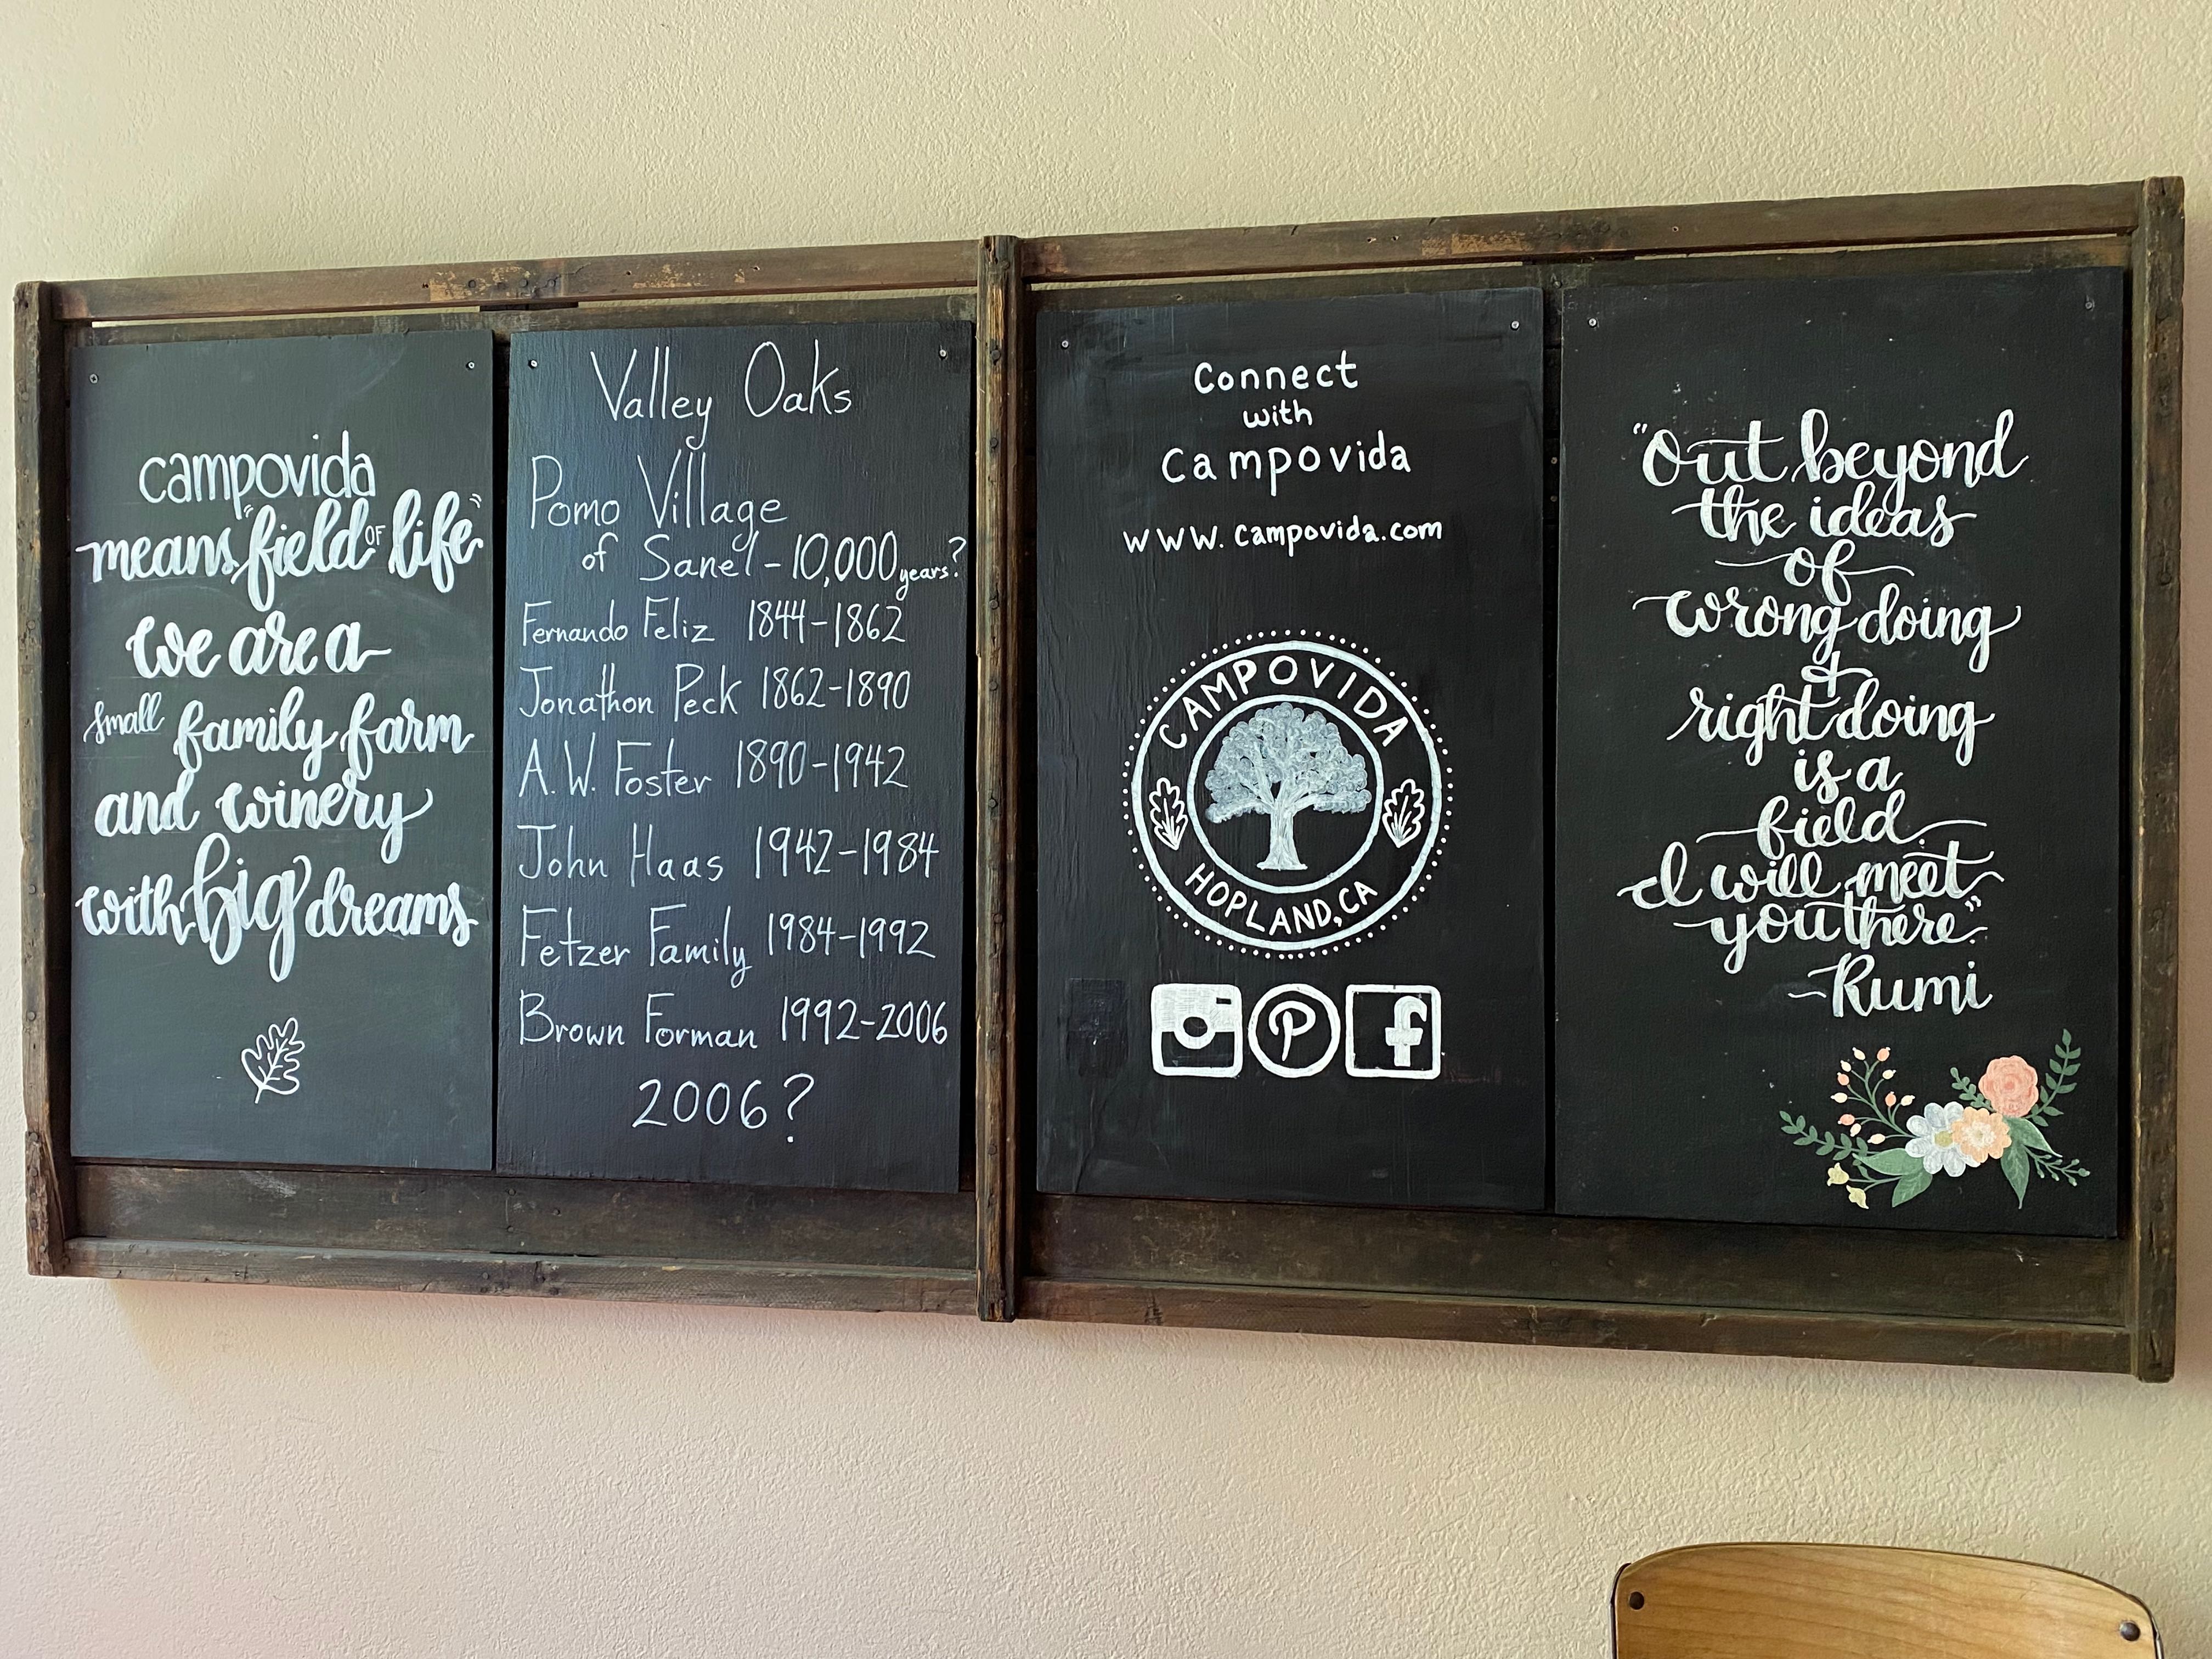 campovida
means "field OF life"
we are a
small family farm
and winery
with big dreams
Valley Oaks
Pomo Village
of Sanel - 10,000 years?
Fernando Feliz 1844-1862
Jonathon Peck 1862-1890
A.W. Foster 1890-1942
John Haas 1942-1984
Fetzer Family 1984-1992
Brown Forman 1992-2006
2006?
Connect
with
Campovida
www.campovida.com
CAMPOVIDA
HOPLAND, CA
"Out beyond
the ideas
of
wrong doing
&
right doing
is a
field.
I will meet
you there."
~Rumi